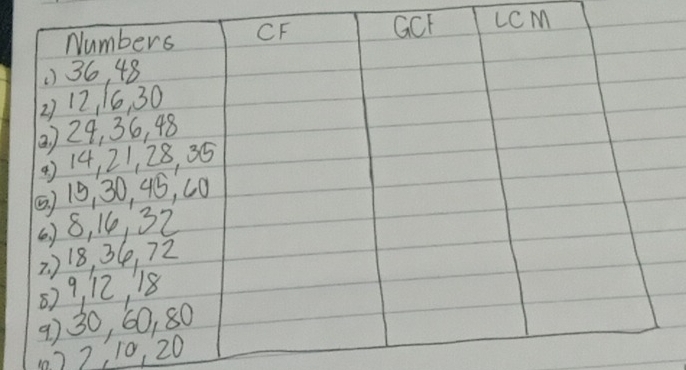 Numbers CF GCF LCM
1) 36, 48
2) 12, 16, 30
3.) 24, 36, 48
4.) 14, 21, 28, 35
5.) 15, 30, 45, 60
6.) 8, 16, 32
7.) 18, 36, 72
8) 9, 12, 18
9) 30, 60, 80
10.) 2, 10, 20